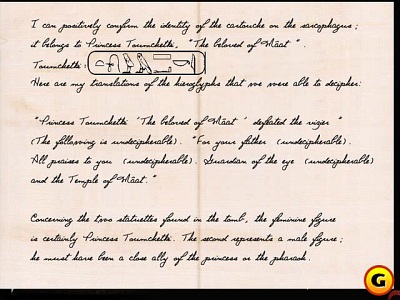 I can positively confirm the identity of the cartouche on the sarcophagus;
it belongs to Princess Toumchetti, "The beloved of Mâat".
Toumchetti:
Here are my translations of the hieroglyphs that we were able to decipher:
"Princess Toumchetti 'The beloved of Mâat' defeated the vizier"
(The following is undecipherable). "For your father (undecipherable).
All praises to you (undecipherable). Guardian of the eye (undecipherable)
and the Temple of Mâat."
Concerning the two statuettes found in the tomb, the feminine figure
is certainly Princess Toumchetti. The second represents a male figure;
he must have been a close ally of the princess or the pharaoh.
G